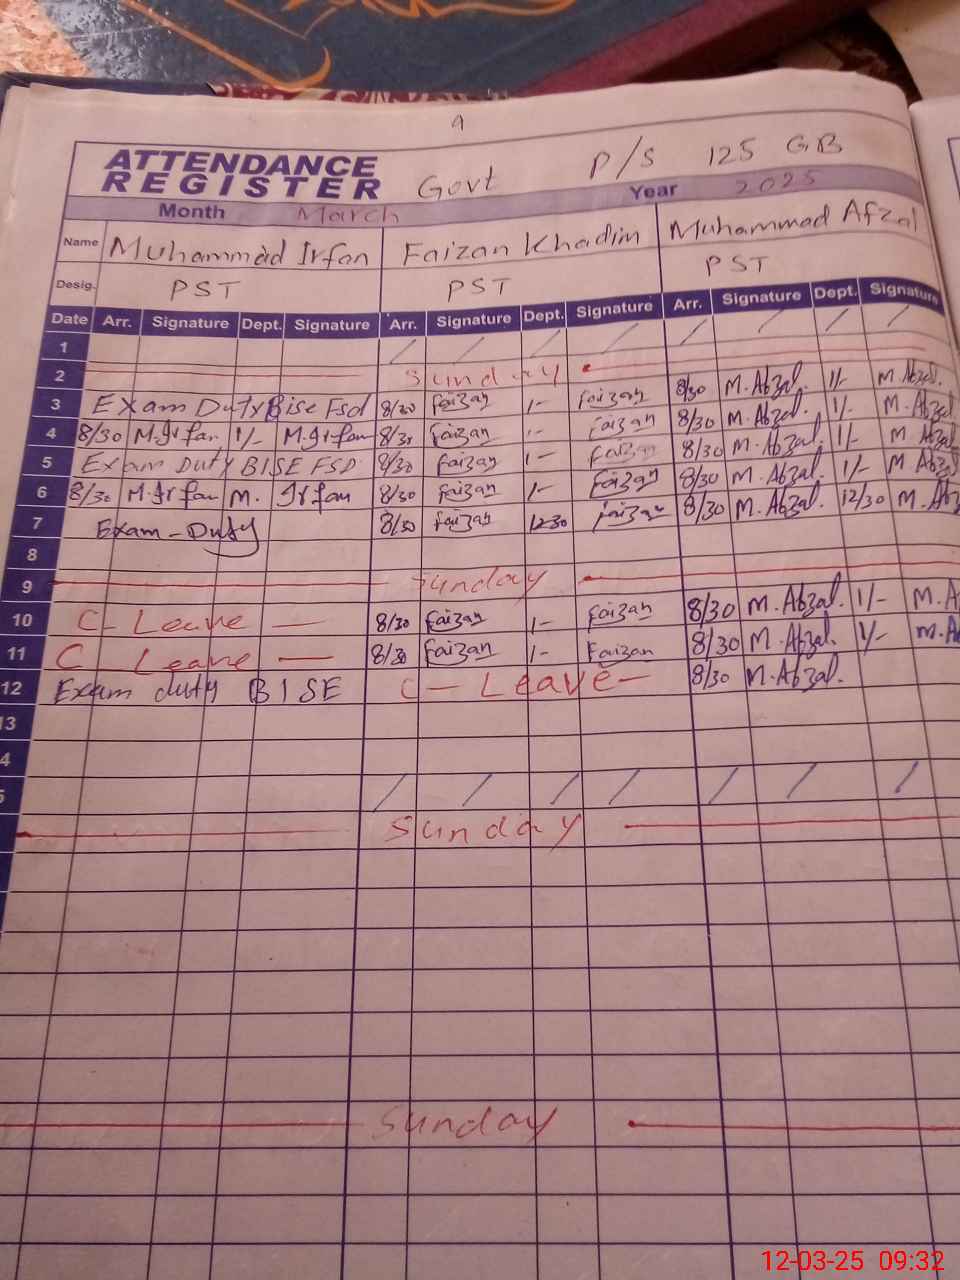 9
ATTENDANCE REGISTER Govt P/S 125 GB
Month March Year 2025
Name Muhammad Irfan Faizan Khadim Muhammad Afzal
Desig. PST PST PST
Date Arr. Signature Dept. Signature Arr. Signature Dept. Signature Arr. Signature Dept. Signature
1 / / / / / / / /
2 Sunday
3 Exam Duty Bise Fsd 8/30 Faizan 1/- Faizan 8/30 M.Afzal. 1/- M.Afzal.
4 8/30 M.Irfan 1/- M.Irfan 8/30 Faizan 1/- Faizan 8/30 M.Afzal. 1/- M.Afzal.
5 Exam Duty BISE FSD 8/30 Faizan 1/- Faizan 8/30 M.Afzal. 1/- M Afzal
6 8/30 M.Irfan M. Irfan 8/30 Faizan 1/- Faizan 8/30 M.Afzal. 1/- M Afzal
7 Exam-Duty 8/30 Faizan 12-30 Faizan 8/30 M.Afzal. 12/30 M.Af
8
9 Sunday
10 C - Leave - 8/30 Faizan 1/- Faizan 8/30 M.Afzal. 1/- M.A
11 C - Leave - 8/30 Faizan 1/- Faizan 8/30 M.Afzal. 1/- M.A
12 Exam duty BISE C - Leave - 8/30 M.Afzal.
13
4
5 / / / / / / /
Sunday
Sunday
12-03-25 09:32